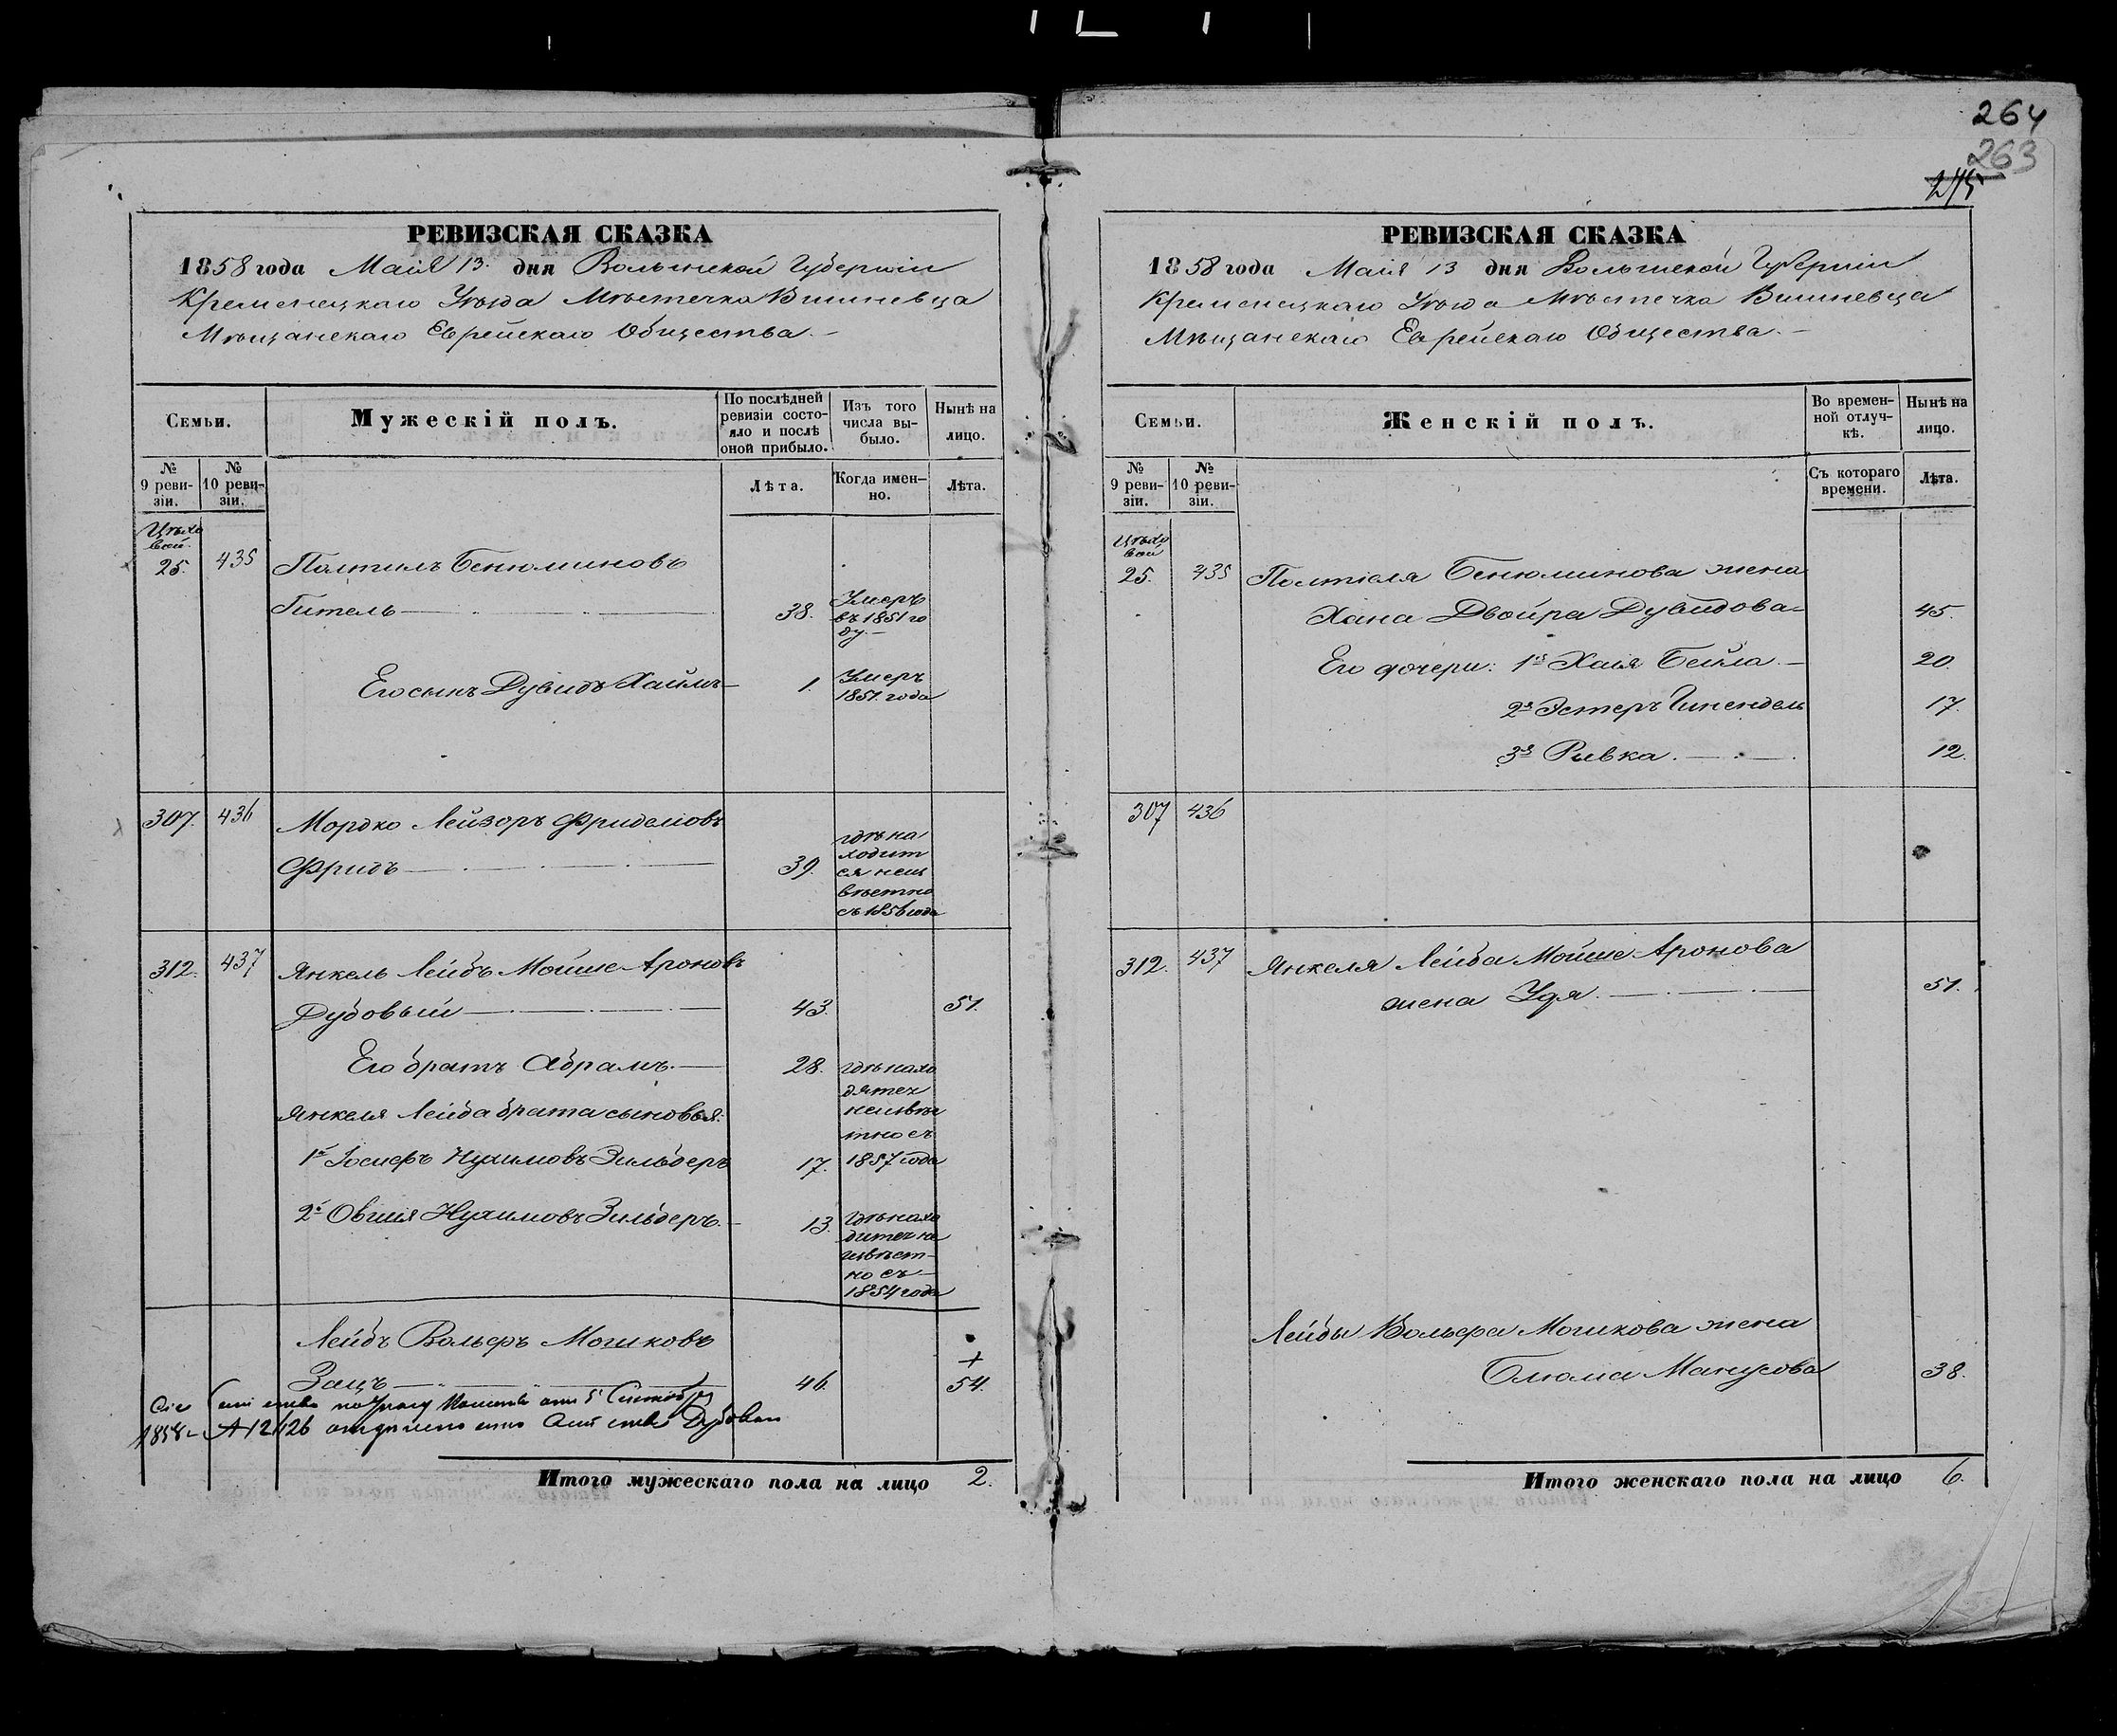 264
263
275
РЕВИЗСКАЯ СКАЗКА
1858 года Маія 13. дня Волынской Губерніи
Кременецкаго Уѣзда Мѣстечка Вишневца
Мѣщанскаго Еврейскаго Общества.
Семьи.
Мужескій полъ.
По послѣдней ревизіи состояло и послѣ оной прибыло.
Изъ того числа выбыло.
Нынѣ на лицо.
№ 9 ревизіи.
№ 10 ревизіи.
Лѣта.
Когда именно.
Лѣта.
Цѣхо
вой
25. 435 Палтилъ Бенюминовъ
Гитель 38. Умеръ
въ 1851 го
ду.
Его сынъ Дувидъ Хаимъ 1. Умеръ
1851. года
307. 436 Мордко Лейзоръ Фриделіовъ
Фридъ 39. гдѣ на
ходит
ся неиз
вѣстно
съ 1856 года
312. 437 Янкель Лейбъ Мойше-Ароновъ
Дубовый 43. 51.
Его братъ Абрамъ. 28. гдѣ нахо
дятся
неизвѣс
тно съ
1857 года
Янкеля Лейба брата сыновья:
1й Іосифъ Нухимовъ Зильберъ 17.
2й Овшія Нухимовъ Зильберъ. 13. гдѣ нахо
дится не
извѣст-
но съ
1854 года
Лейбъ Вольфъ Мошковъ
Зацъ 46. + 54.
Сіе
1858
Итого мужескаго пола на лицо 2.
РЕВИЗСКАЯ СКАЗКА
1858 года Маія 13 дня Волынской Губерніи
Кременецкаго Уѣзда Мѣстечка Вишневца
Мѣщанскаго Еврейскаго Общества.
Семьи.
Женскій полъ.
Во временной отлучкѣ.
Нынѣ на лицо.
№ 9 ревизіи.
№ 10 ревизіи.
Съ котораго времени.
Лѣта.
Цѣхо
вой
25. 435 Полтіеля Бенюминова жена
Хана Двойра Дувидова 45.
Его дочери: 1я Хаія Бейла. 20.
2я Эстеръ Шнендель 17.
3я Ривка. 12.
307 436
312. 437 Янкеля Лейба Мойше-Аронова
жена Удя. 51.
Лейбы Вольфа Мошкова жена
Блюма Манусова 38.
Итого женскаго пола на лицо 6.